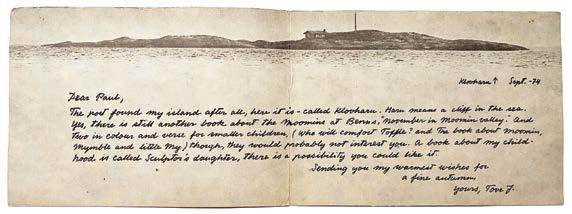 Klovharu↑ Sept. -74
Dear Paul,
The post found my island after all, here it is - called Klovharu. Haru means a cliff in the sea.
Yes, there is still another book about the Moomins at Benns, "November in Moominvalley". And
two in colour and verse for smaller children, (Who will comfort Toffle? and The book about Moomin,
Mymble and little My) though, they would probably not interest you. A book about my child-
hood is called Sculptor's daughter, there is a possibility you could like it.
Sending you my warmest wishes for
a fine autumn.
Yours, Tove J.